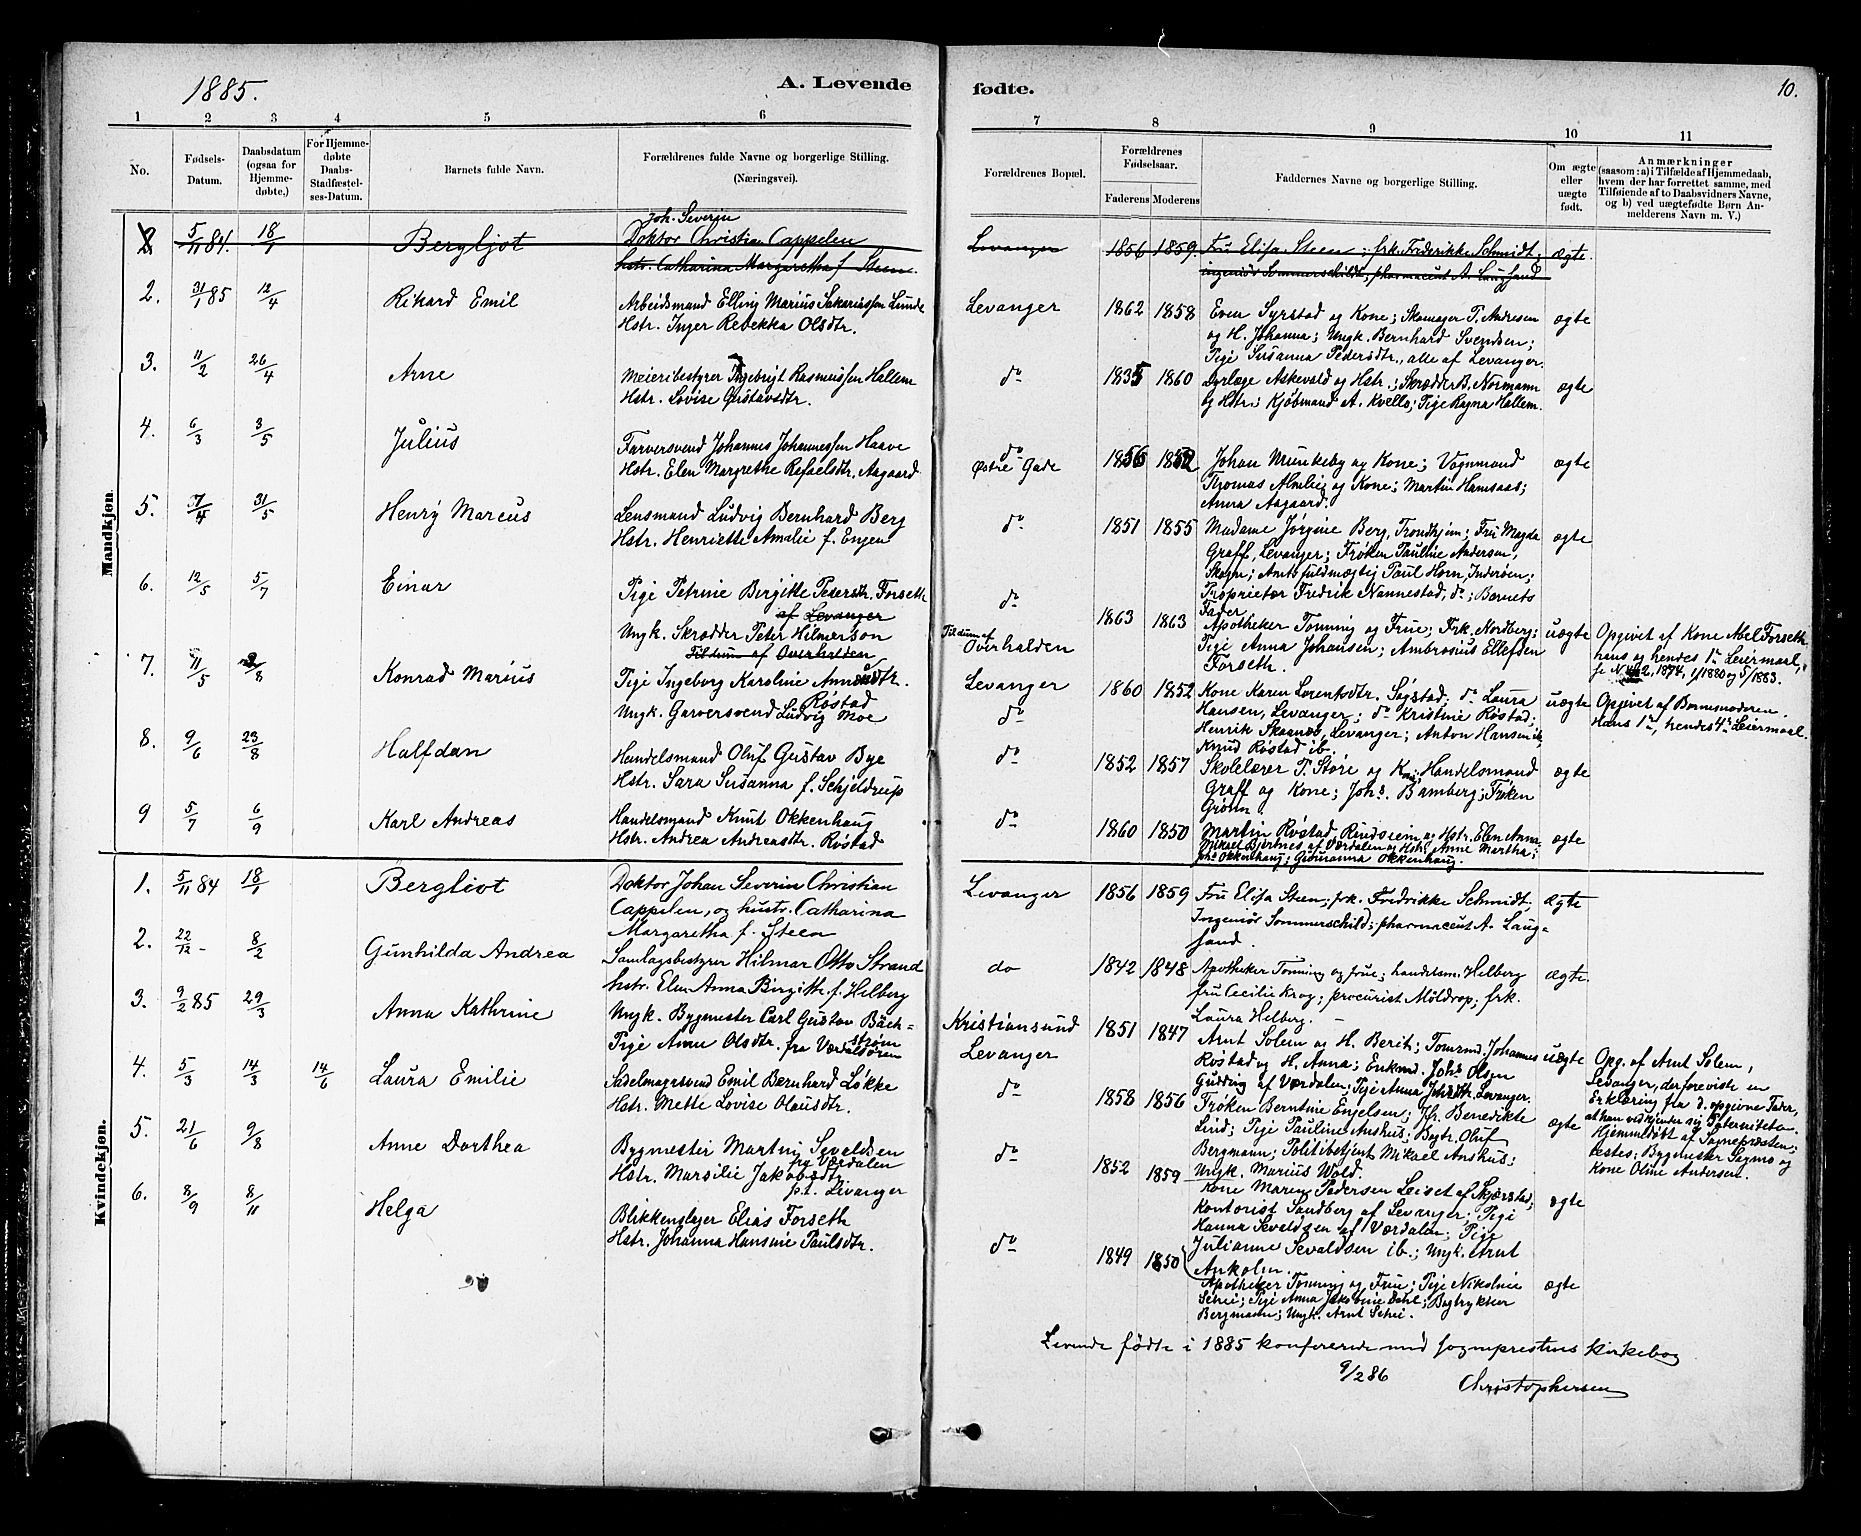 1885.
A. Levende
fødte.
10.
1 2 3 4 5 6 7 8 9 10 11
No.
Fødsels-
Datum.
Daabsdatum
(ogsaa for
Hjemme-
døbte,)
For Hjemme-
døbte
Daabs-
Stadfæstel-
ses-Datum.
Barnets fulde Navn.
Forældrenes fulde Navne og borgerlige Stilling.
(Næringsvei).
Forældrenes Bopæl.
Forældrenes
Fødselsaar.
Faderens Moderens
Faddernes Navne og borgerlige Stilling.
Om ægte
eller
uægte
født.
Anmærkninger
(saasom: a) i Tilfælde af Hjemmedaab,
hvem der har forrettet samme, med
Tilføiende af to Daabsvidners Navne,
og b) ved uægtefødte Børn An-
melderens Navn m. V.)
Mandkjøn.
5/11 84. 18/1 Bergljot
Joh. Severin
Doktor Christian Cappelen
hstr. Catharina Margaretha f. Steen
Levanger 1856 1859.
Fru Elisa Steen; frk. Frederikke Schmidt;
ingeniør Sommerschildt; pharmaceut A. Laugsand
ægte.
2. 31/1 85 12/4 Rikard Emil
Arbeidsmand Elling Marius Sakariassen Lunde
Hstr. Inger Rebekka Olsdtr.
Levanger 1862 1858
Even Syrstad og Kone; Skomager P. Andresen
og H. Johanna; Ungk. Bernhard Svendsen;
Pige Susanna Pedersdtr., alle af Levanger.
ægte
3. 11/2 26/4 Arne
Meieribestyrer Ingebrigt Rasmussen Hallem
Hstr. Lovise Gustavsdtr.
do 1835 1860
Dyrlæge Askevold og Hstr.; Skrædder B. Normann
og Hstr.; Kjøbmand A. Kvello; Pige Ragna Hallem.
ægte
4. 6/3 3/5 Julius
Farversvend Johannes Johannessen Haave
Hstr. Elen Margrethe Refaelsdtr. Aagaard.
do
Østre Gade 1856 1852
Johan Munkeby og Kone; Vognmand
Thomas Almlig og Kone; Martin Hansaas;
Anna Aagaard.
ægte
5. 7/4 31/5 Henry Marcus
Lensmand Ludvig Bernhard Berg
Hstr. Henriette Amalie f. Engen
do 1851 1855
Madame Jørgine Berg, Trondhjem; Fru Magda
Graff, Levanger; Frøken Pauline Andersen,
Skogn; Amtsfuldmægtig Paul Horn, Inderøen;
Proprietær Fredrik Nannestad, do; Barnets
Fader.
ægte
6. 12/5 5/7 Einar
Pige Petrine Birgitte Pedersdtr. Forseth
af Levanger
Ungk. Skrædder Peter Hilmerson
Tildum af Overhalden
do
Tildum af
Overhalden
1863 1863
Apotheker Tonning og Frue; Frk. Nordberg;
Pige Anna Johansen; Ambrosius Ellefsen
Forseth.
uægte
Opgivet af Kone Abel Forseth
hans og hendes 1ste Leiermaal,
7. 11/5 2/8 Konrad Marius
Pige Ingeborg Karoline Annasdtr.
Røstad
Ungk. Garversvend Ludvig Moe
Levanger
do
1860 1852
Kone Karen Lorentsdtr. Søgstad, do Laura
Hansen, Levanger; do Kristine Røstad;
Henrik Skaanes, Levanger; Anton Hansen ib,
Knud Røstad ib.
uægte
Opgivet af Barnemoderen.
Hans 1ste, hendes 4de Leiermaal.
8. 9/6 23/8 Halfdan
Handelsmand Oluf Gustav Bye
Hstr. Sara Susanna f. Schjeldrup
do 1852 1857
Skolelærer P. Støre og Kone; Handelsmand
Graff og Kone; Johs. Bamberg; Frøken
Grønn.
ægte
9 5/7 6/9 Karl Andreas
Handelsmand Knut Okkenhaug
Hstr. Andrea Andreasdtr. Røstad
do 1860 1850
Martin Røstad, Rindseim og Hstr. Elen Anna;
Mikael Bjørtnes af Værdalen og Hstr. Anne Martha;
Johs. Okkenhaug; Gurianna Okkenhaug.
ægte
Kvindekjøn.
1. 5/11 84 18/1 Bergliot
Doktor Johan Severin Christian
Cappelen, og hustr. Catharina
Margaretha f. Steen
Levanger 1856 1859
Fru Elisa Steen; frk. Fredrikke Schmidt,
Ingeniør Sommerschild; pharmaceut A. Laug-
sand.
ægte
2. 22/12 - 8/2 Gunhilda Andrea
Samlagsbestyrer Hilmar Otto Strand
hstr. Elen Anna Birgitte f. Helberg
do 1842 1848
Apotheker Tonning og frue; handelsm. Helberg
fru Cecilie Krog; procurist Möldrop; frk.
Laura Helberg. —
ægte.
3. 9/2 85 29/3 Anna Kathrine
Ungk. Bygmester Carl Gustav Bäck-
strøm
Pige Anne Olsdtr. fra Værdalsøren
Kristiansund
Levanger
1851 1847
Arnt Solem og H. Berit; Tømmd. Johannes
Røstad og H. Anna; Enkemd. Johs. Olsen
Gudding af Værdalen; Pige Anna Johsdtr. Levanger.
uægte
Opg. af Arnt Solem,
Levanger, der foreviste en
Erklæring fra d. opgivne Fader,
at han vedkjender sig Paterniteten.
4. 5/3 14/3 14/6 Laura Emilie
Sadelmagersvend Emil Bernhard Løkke
Hstr. Mette Lovise Olausdtr.
do 1858 1856
Frøken Berntine Engelsen; Fr. Benedikte
Lind; Pige Pauline Aushus; Bogtr. Oluf
Bergmann; Politibetjent Mikael Aushus;
Ungk. Marius Wold.
ægte
Hjemmedøbt af Sognepræsten;
testes; Bygmester Sagmo og
Kone Oline Andersen.
5. 21/6 9/8 Anne Dorthea
Bygmester Martin Sevaldsen
fra Værdalen
Hstr. Marsilie Jakobsdtr.
p.t. Levanger
do 1852 1859
Kone Maren Pedersen Leiset af Skjærstad,
Kontorist Sandberg af Levanger; Pige
Hanna Sevaldsen af Værdalen; Pige
Julianne Sevaldsen ib.; Ungk. Arnt
Ankolm.
ægte
6. 8/9 8/11 Helga
Blikkenslager Elias Forseth
Hstr. Johanna Hansine Paulsdtr.
do 1849 1850
Apotheker Tonning og Frue; Pige Nikoline
Setrei; Pige Anna Jakobine Dahl; Bogtrykker
Bergmann; Ungk. Arnt Setrei.
ægte
Levende fødte i 1885 konfererede med sogneprestens kirkebog
9/2 86 Christophersen